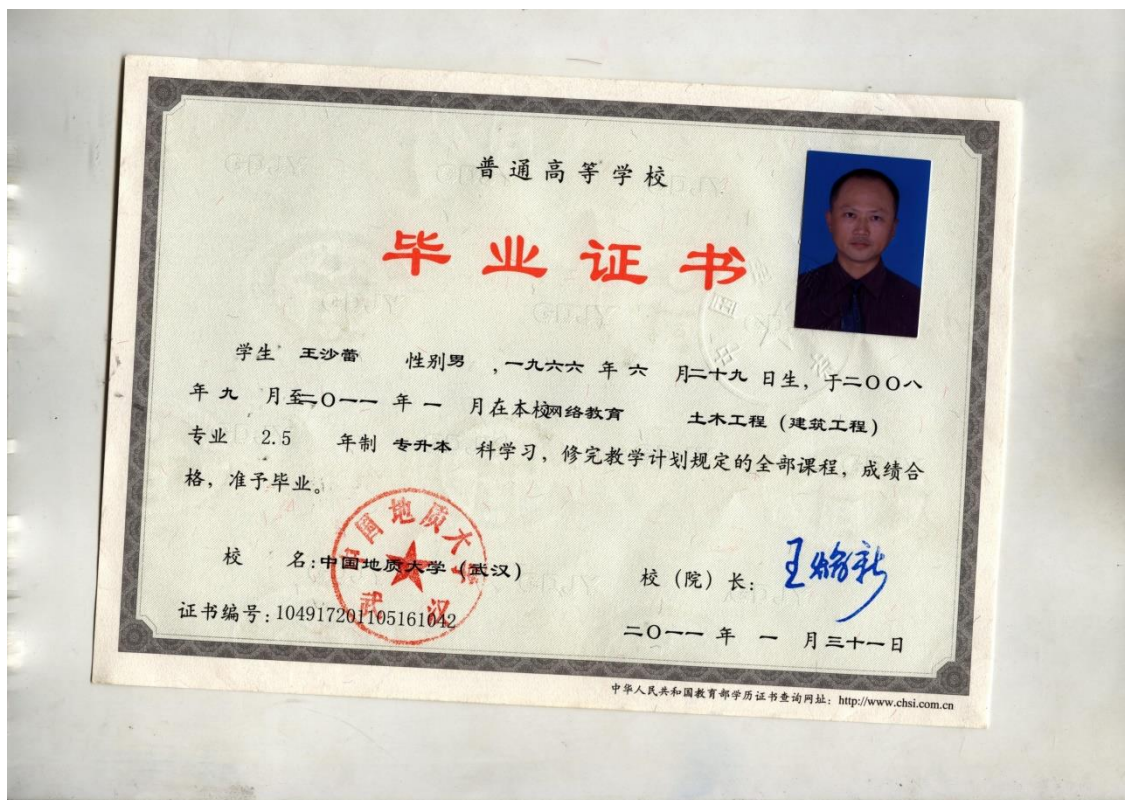 普通高等学校
毕业证书
学生 王沙蕾 性别男 ,一九六六 年 六 月二十九 日生,于二〇〇八
年 九 月至二〇一一 年 一 月在本校网络教育 土木工程(建筑工程)
专业 2.5 年制 专升本 科学习,修完教学计划规定的全部课程,成绩合
格,准予毕业。
校 名:中国地质大学(武汉)
中国地质大学
武汉
校(院)长:
证书编号:104917201105161042
二〇一一 年 一 月三十一日
中华人民共和国教育部学历证书查询网址:http://www.chsi.com.cn